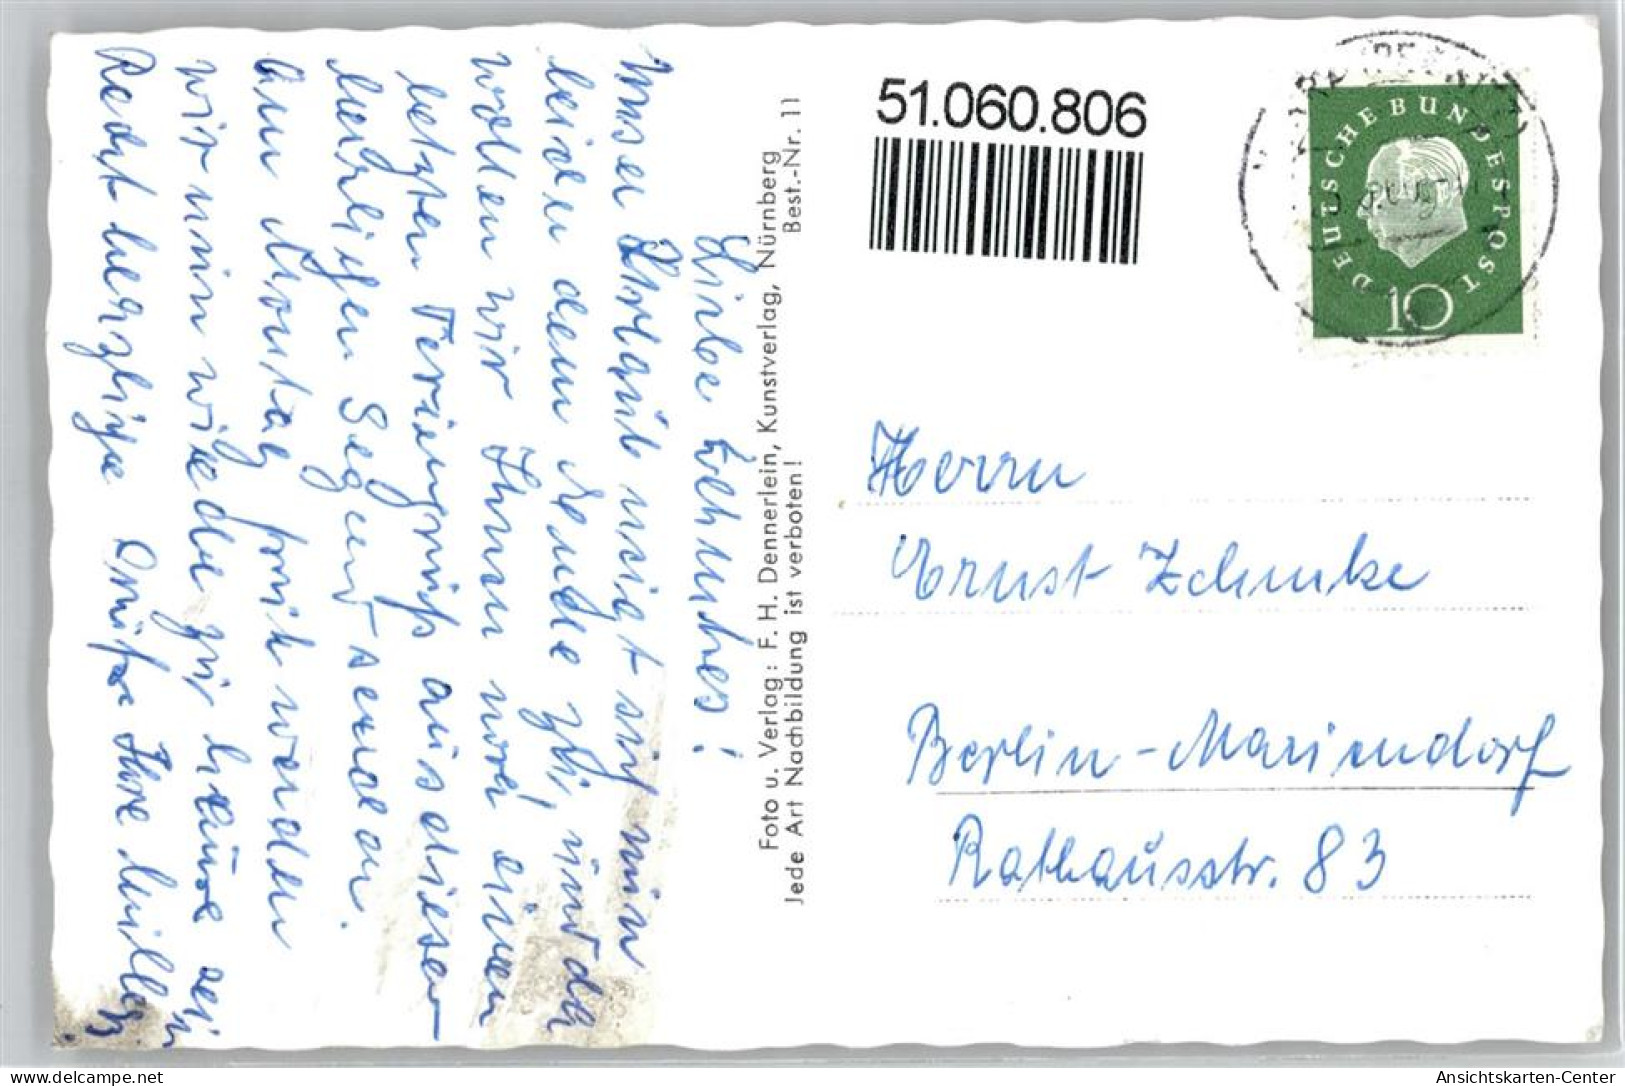 Liebe Zehmkes!
Unser Urlaub neigt sich nun
leider dem Ende zu, und da
wollen wir Ihnen noch einen
letzten Feriengruß aus dieser
herrlichen Gegend senden.
Am Montag früh werden
wir nun wieder zu Hause sein.
Recht herzliche Grüße Ihre
Foto u. Verlag: F. H. Dennerlein, Kunstverlag, Nürnberg
Jede Art Nachbildung ist verboten! Best.-Nr. 11
51.060.806
DEUTSCHE BUNDESPOST
10
Herrn
Ernst Zehmke
Berlin-Mariendorf
Rathausstr. 83
www.ak-ansichtskarten.de
Ansichtskarten-Center